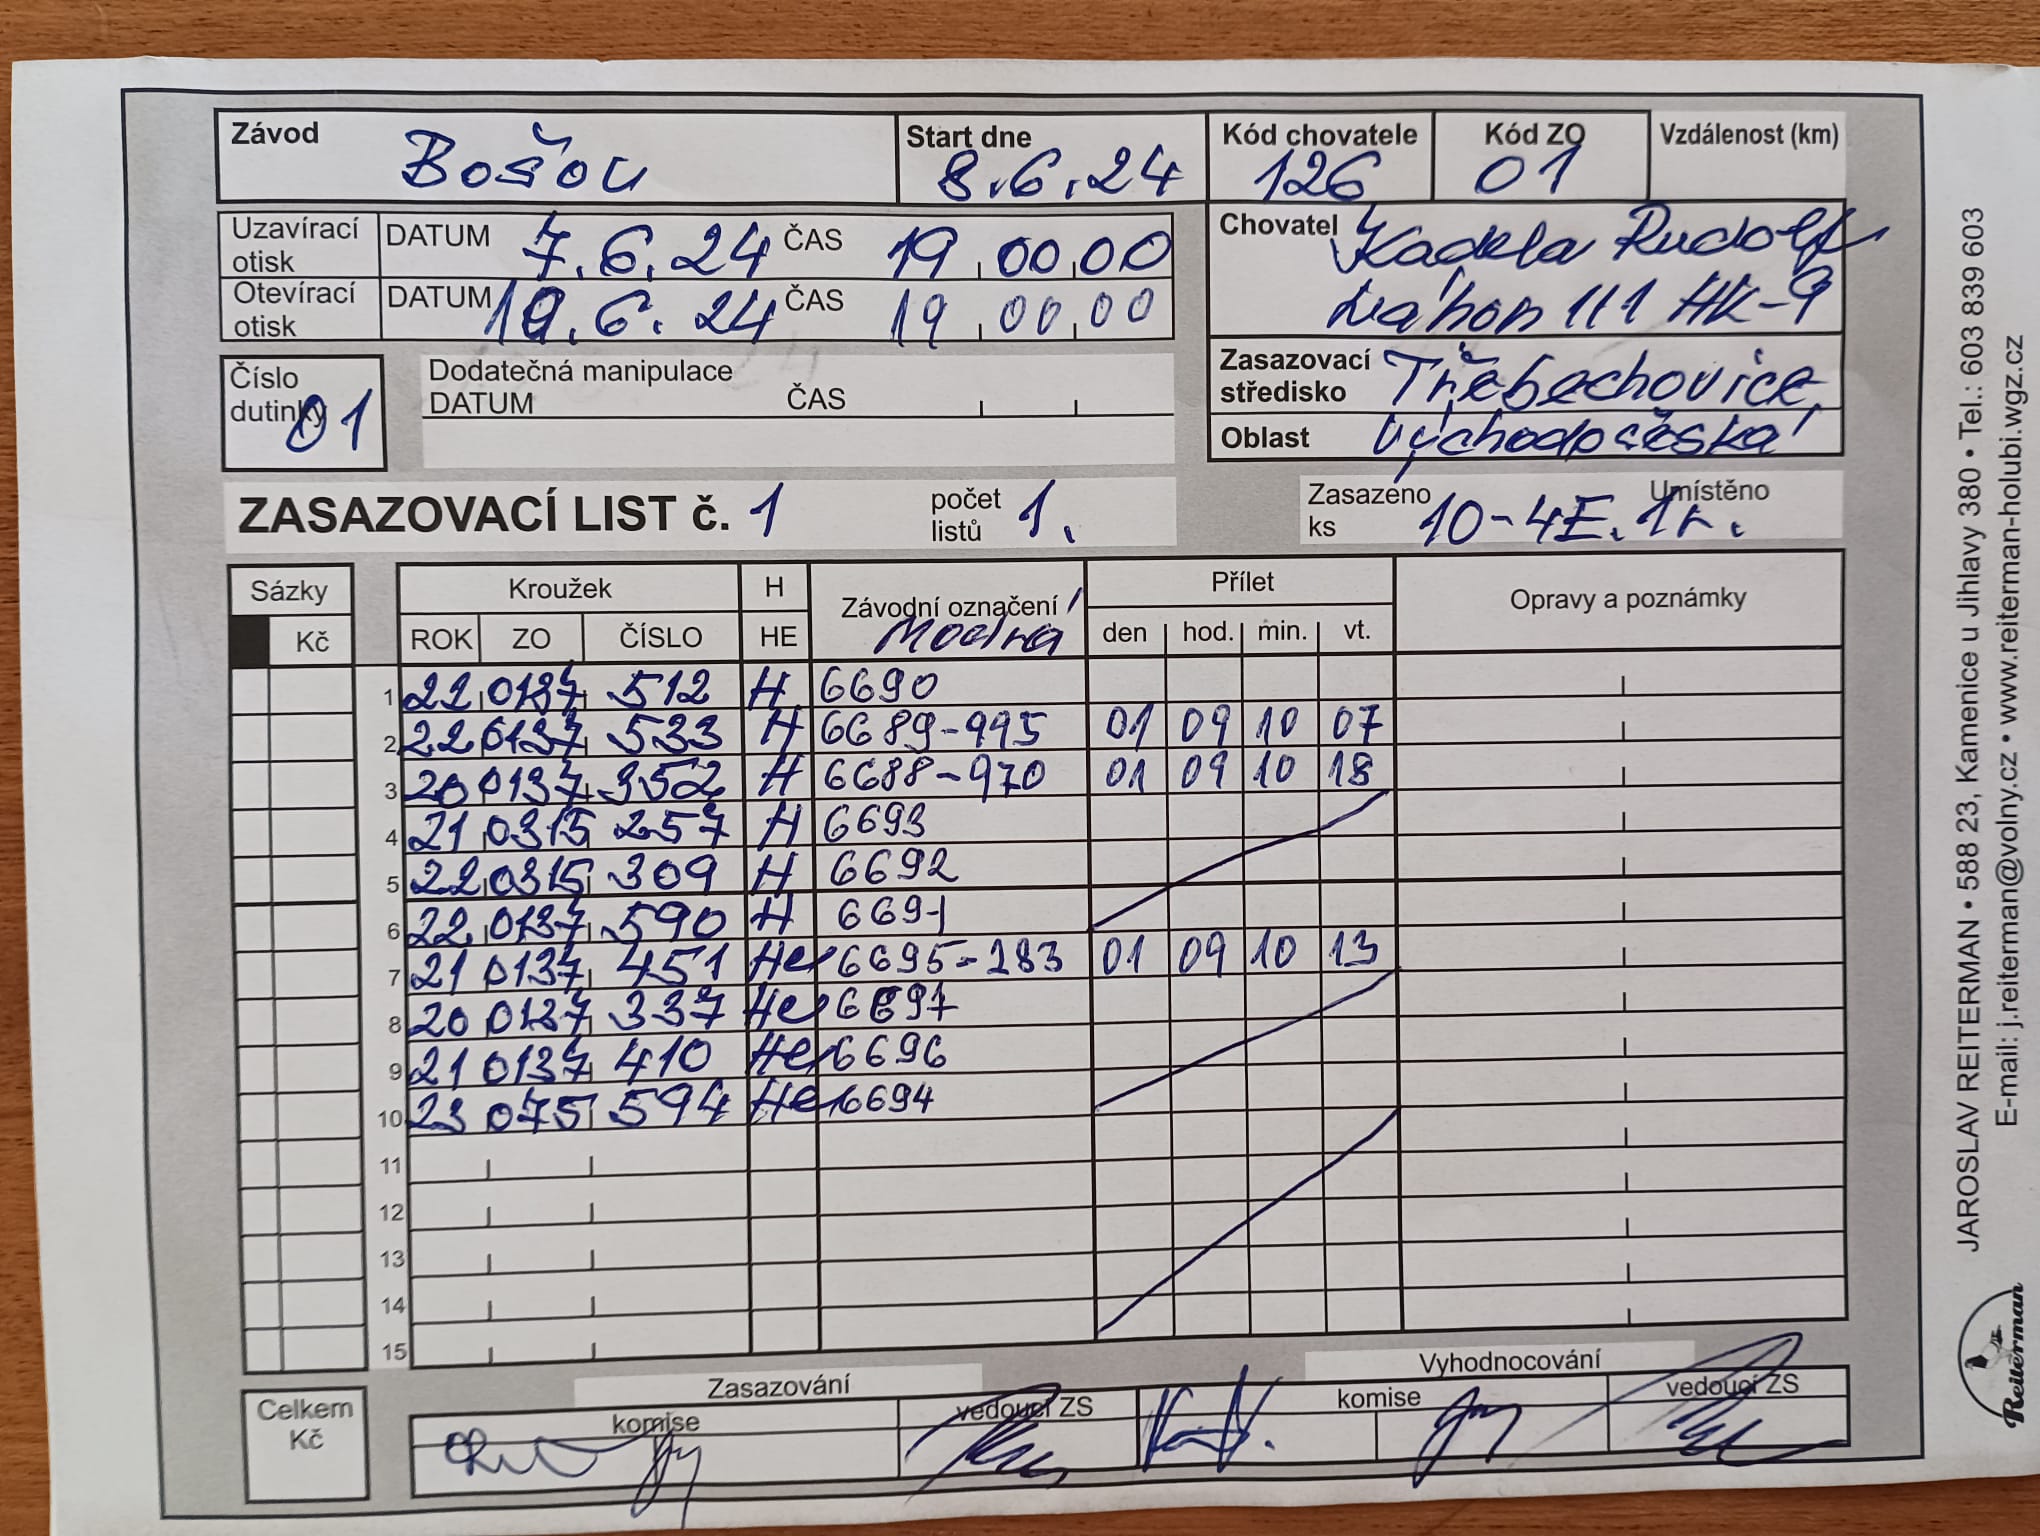 Závod Bošov Start dne 8.6.24 Kód chovatele 126 Kód ZO 01 Vzdálenost (km)
Uzavírací otisk DATUM 7.6.24 ČAS 19 00 00
Otevírací otisk DATUM 10.6.24 ČAS 19 00 00
Chovatel Kadela Rudolf
111 HK-9
Zasazovací středisko Třebechovice
Oblast Východočeská
Číslo dutinky 01
Dodatečná manipulace
DATUM ČAS
ZASAZOVACÍ LIST č. 1 počet listů 1.
Zasazeno ks 10-4E. Umístěno 1k.
Sázky Kroužek H Závodní označení Přílet Opravy a poznámky
Kč ROK ZO ČÍSLO HE Modrá den hod. min. vt.
1 22 0137 512 H 6690
2 22 0137 533 H 6689-995 01 09 10 07
3 20 0137 352 H 6688-970 01 09 10 18
4 21 0315 257 H 6693
5 22 0315 309 H 6692
6 22 0137 590 H 6691
7 21 0137 451 He 6695-283 01 09 10 13
8 20 0137 337 He 6697
9 21 0137 410 He 6696
10 23 075 594 He 6694
11
12
13
14
15
Celkem Kč
Zasazování Vyhodnocování
komise vedoucí ZS komise vedoucí ZS
JAROSLAV REITERMAN • 588 23, Kamenice u Jihlavy 380 • Tel.: 603 839 603
E-mail: j.reiterman@volny.cz • www.reiterman-holubi.wgz.cz
Reiterman